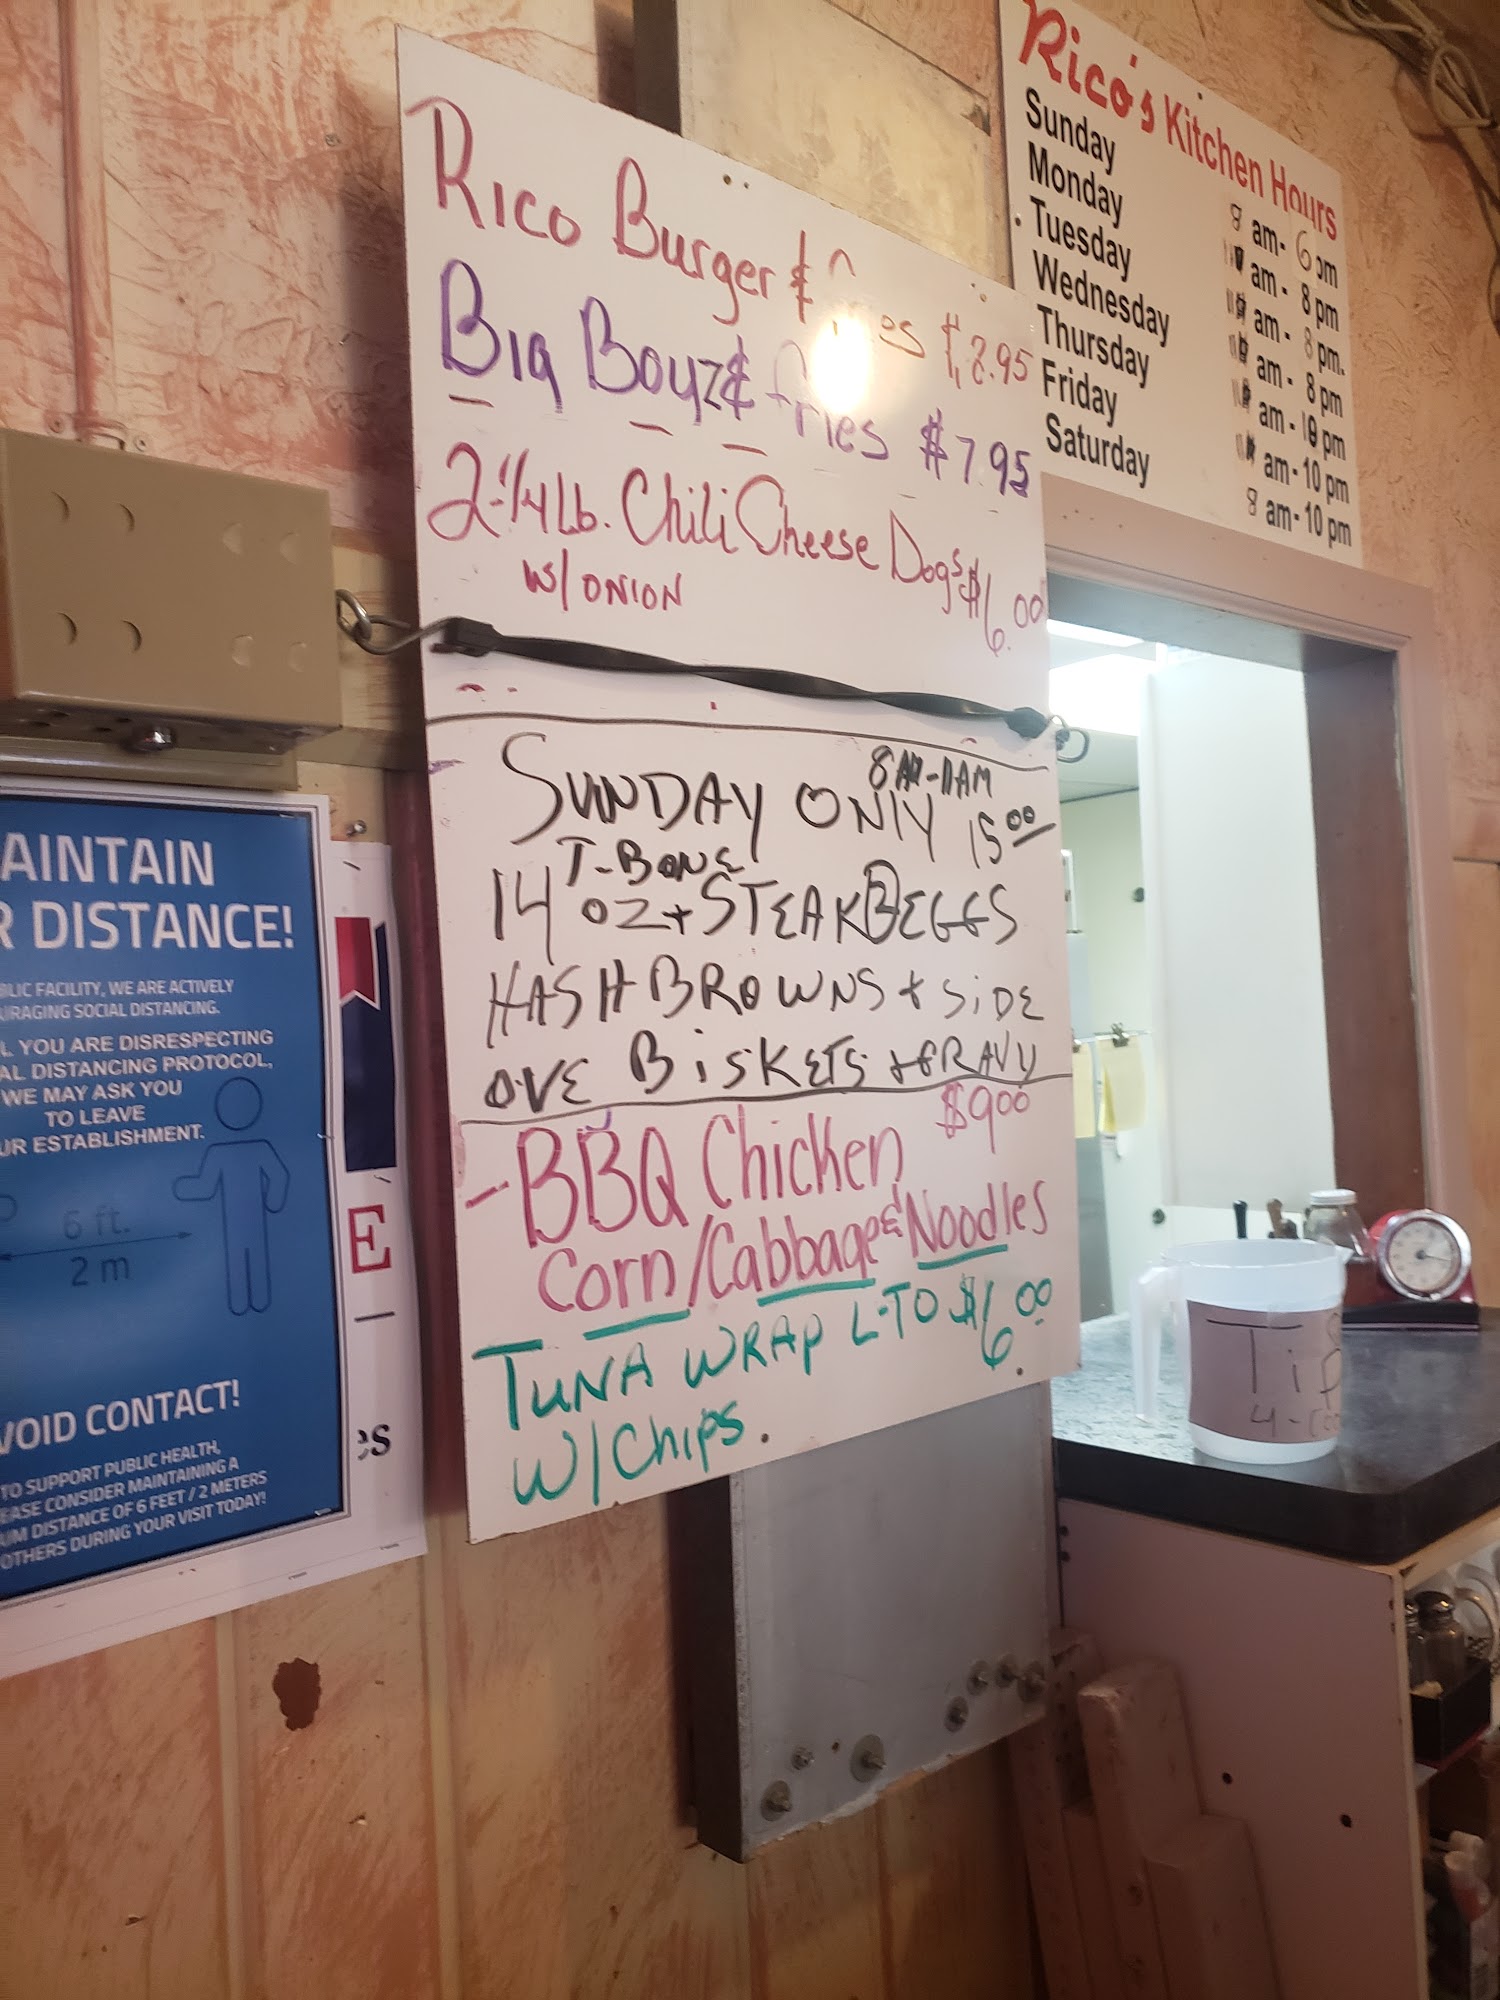 Rico Burger & fries $8.95
Big Boyz & fries $7.95
2-1/4 Lb. Chili Cheese Dogs $6.00
w/ ONION
SUNDAY ONLY 8AM-11AM
15.00
T-BONE
14 OZ + STEAK 2 EGGS
HASH BROWNS + SIDE
OVE BISKETS + GRAVY
$9.00
- BBQ Chicken
Corn/Cabbage & Noodles
TUNA WRAP L-TO $6.00
W/Chips.
Rico's Kitchen Hours
Sunday 8 am - 6 pm
Monday am - 8 pm
Tuesday am - 8 pm.
Wednesday am - 8 pm
Thursday am - 10 pm
Friday am - 10 pm
Saturday 8 am - 10 pm
AINTAIN
R DISTANCE!
BLIC FACILITY, WE ARE ACTIVELY
URAGING SOCIAL DISTANCING.
L YOU ARE DISRESPECTING
AL DISTANCING PROTOCOL,
WE MAY ASK YOU
TO LEAVE
UR ESTABLISHMENT.
6 ft.
2 m
VOID CONTACT!
TO SUPPORT PUBLIC HEALTH,
EASE CONSIDER MAINTAINING A
UM DISTANCE OF 6 FEET / 2 METERS
OTHERS DURING YOUR VISIT TODAY!
E
es
Tips